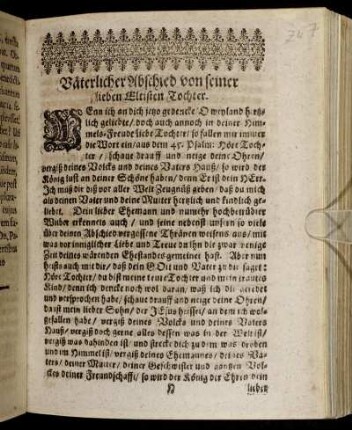 Väterlicher Abschied von seiner
lieben Eltisten Tochter.
WEnn ich an dich jtzo gedencke O weyland hertz-
lich geliebte / doch auch annoch in deiner Him-
mels-Freude liebe Tochter / so fallen mir immer
die Wort ein / aus dem 45. Psalm: Höre Toch-
ter / schaue drauff und neige deine Ohren /
vergiß deines Volcks und deines Vaters Hauß / so wird der
König lust an deiner Schöne haben / denn Er ist dein HErr.
Ich muß dir diß vor aller Welt Zeugnüß geben / daß du mich
als deinen Vater und deine Mutter hertzlich und kindlich ge-
liebet. Dein lieber Ehemann und nunmehr hochbetrübter
Wittber erkennets auch / und seine nebenst unsern so viele
über deinen Abschied vergossene Thränen weisens aus / mit
was vor inniglicher Lieb und Treue du ihn die zwar wenige
Zeit deines wärenden Ehestandes gemeinet hast. Aber nun
heists auch mit dir / daß dein GOtt und Vater zu dir saget:
Höre Tochter / du bist meine treue Tochter und mein
Kind / denn ich dencke noch wol daran / was ich dir geredet
und versprochen habe / schaue drauff und neige deine Ohren /
da ist mein lieber Sohn / der JEsus heisset / an dem ich wol-
gefallen habe / vergiß deines Volcks und deines Vaters
Hauß / vergiß doch gerne alles dessen was in der Welt ist /
vergiß was dahinden ist / und strecke dich zu dem was droben
und im Himmel ist / vergiß deines Ehemannes / deines Va-
ters / deiner Mutter / deiner Geschwister und gantzen Vol-
ckes deiner Freundschafft / so wird der König der Ehren dein
lieber